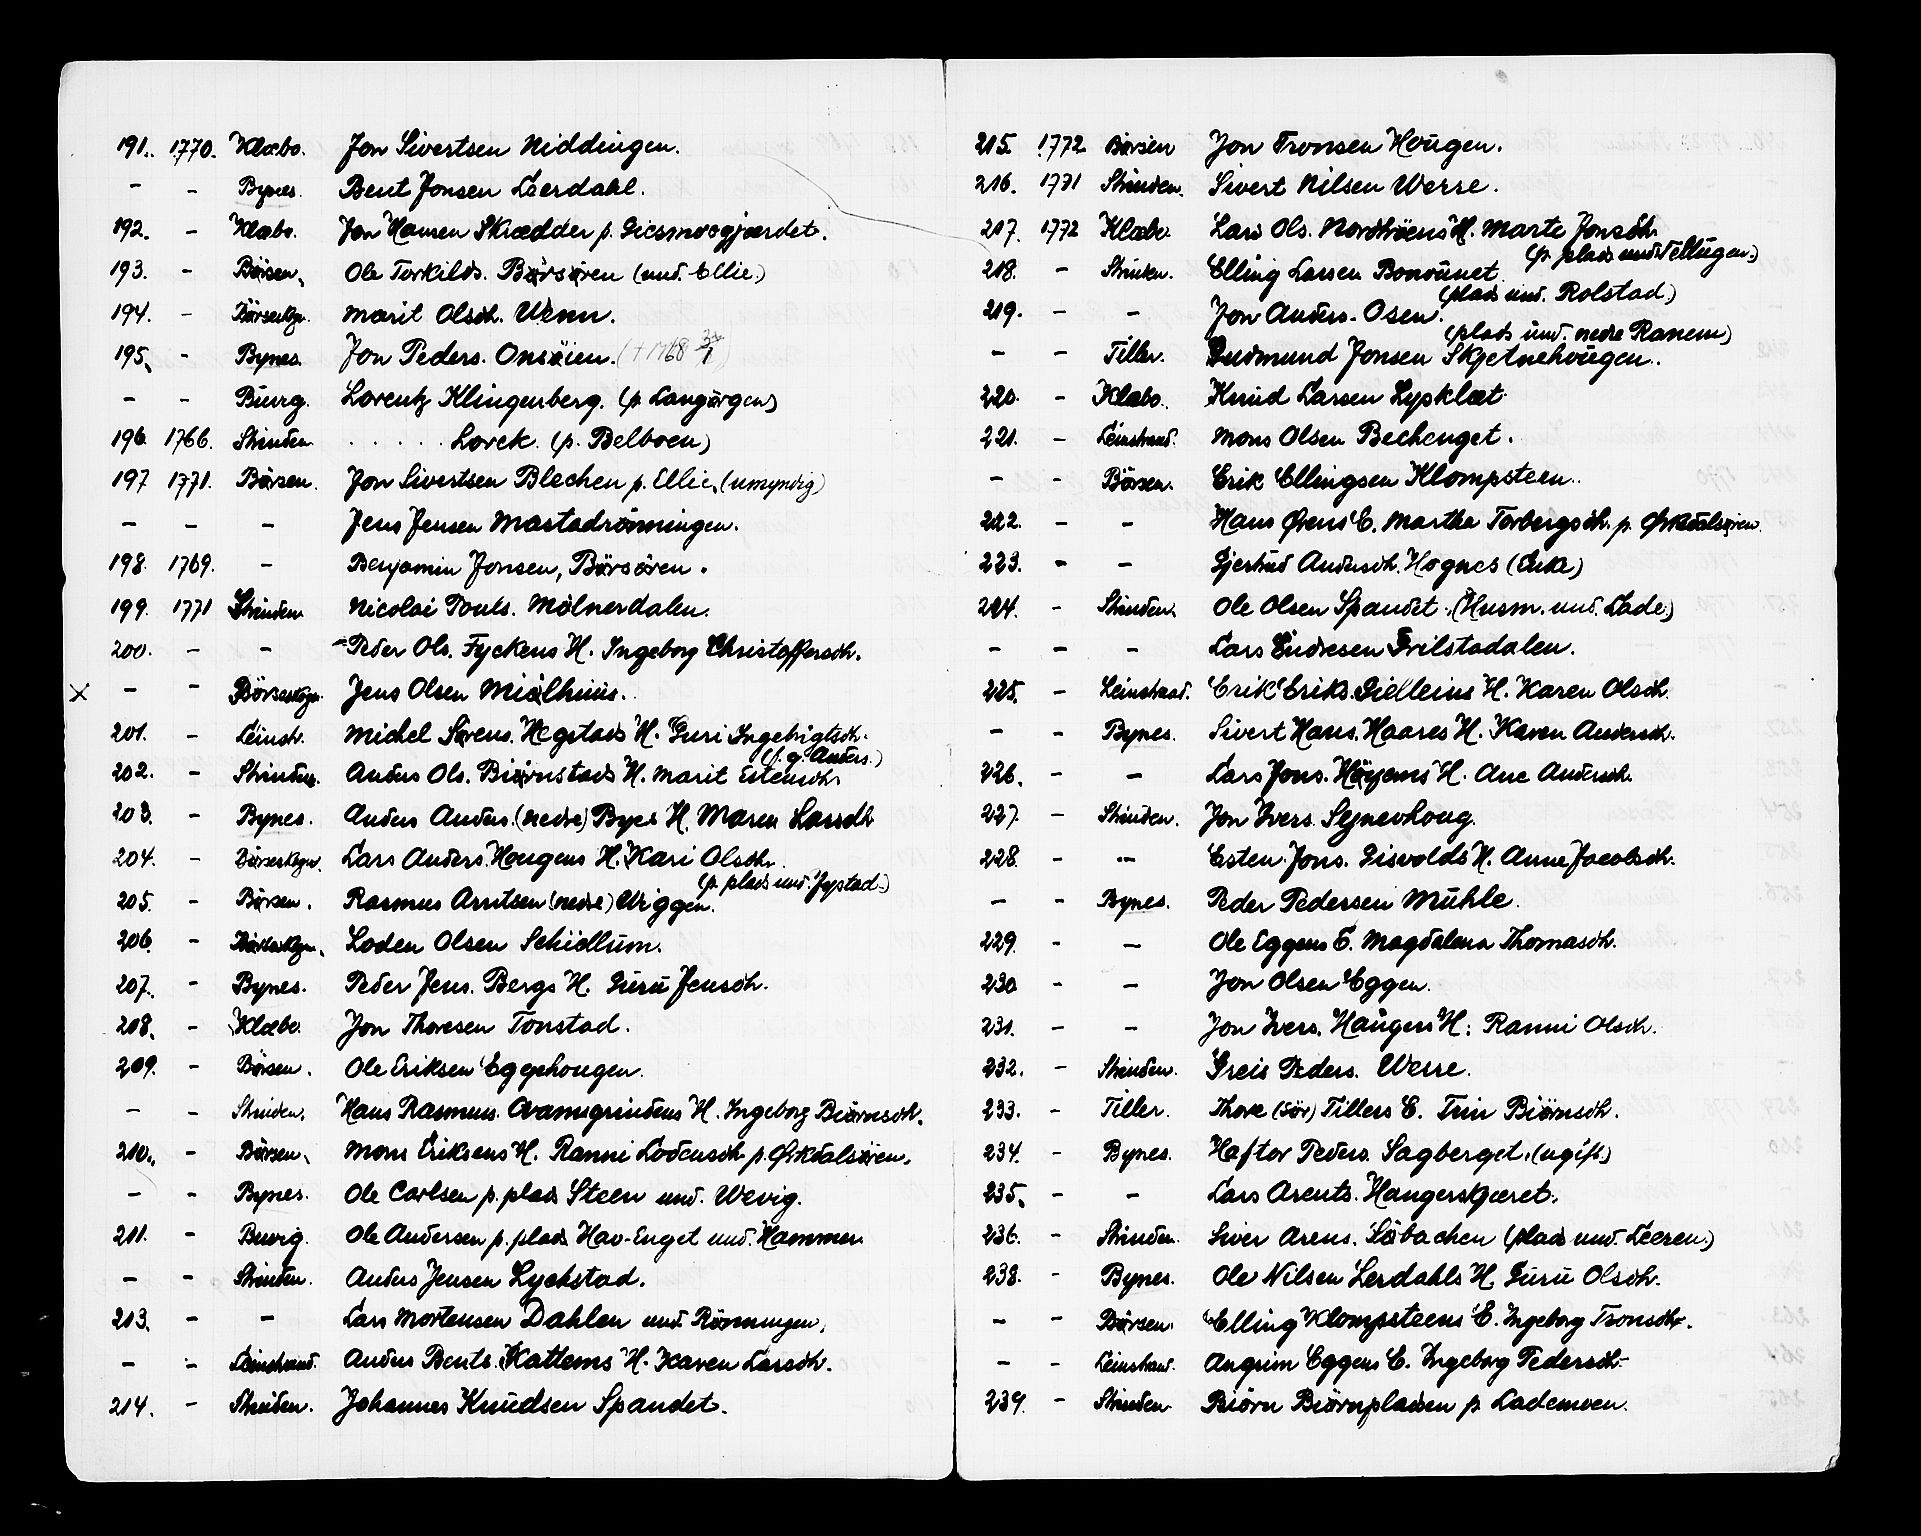 191. 1770. Klæbo. Jon Sivertsen Niddingen.
- - Bynes. Bent Jonsen Leerdahl.
192. - Klæbo. Jon Hansen Skrædder p. Giesmoogjærdet.
193. - Börsen. Ole Torkilds. Börsören (und. Ellie.)
194. - Börseskgn. Marit Olsdr. Wenn.
195. - Bynes. Jon Peders. Onsöien. (+ 1768
- - Buvig. Lorentz Klingenberg. (p. Langörgen)
196. 1766. Strinden. . . . . . Lorck. (p. Belboen)
197 1771. Börsen. Jon Sivertsen Blechen p. Ellie. (umyndig)
- - - Jens Jensen Mastadrönningen.
198. 1769. - Benjamin Jonsen, Börsören.
199. 1771 Strinden Nicolai Pouls. Mölnerdalen.
200. - - Peder Ols. Fyckens H. Ingeborg Christoffersdr.
X - - Börseskogn. Jens Olsen Miölhuus.
201. - Leinstr. Michel Sörens. Hegstads H. Guri Ingebrigtsdr.
(f. g. Anders.)
202. - Strinden. Anders Ols. Biörnstads H. Marit Estensdr.
203. - Bynes. Anders Anders. (nedre) Byes H. Maren Larsdr.
204. - Börseskogn. Lars Anders. Hougens H. Kari Olsdr.
(p. plads und. Jystad.)
205. - Börsen. Rasmus Arntsen (nedre) Wiggen.
206. - Börseskgn. Loden Olsen Schiellum.
207. - Bynes. Peder Jens. Bergs H. Guru Jensdr.
208. - Klæbo. Jon Thoresen Tonstad.
209. - Börsen. Ole Eriksen Eggehougen.
- - Strinden. Hans Rasmus. Qvamsgrindens H. Ingeborg Biörnsdr.
210. - Börsen. Mons Eriksens H. Ranni Lodensdr. p. Ørkdalsören.
- - Bynes. Ole Carlsen p. plads Steen und. Wevig.
211. - Buvig. Ole Andersen p. plads Hav-Enget und. Hammer
- - Strinden. Anders Jensen Lyckstad.
213. - - Lars Mortensen Dahlen und Rönningen.
- - Leinstrand. Anders Bents. Kattems H. Karen Larsdr.
214. - Strinden. Johannes Knudsen Spandet.
215. 1772 Börsen Jon Tronsen Hougen.
216. 1771 Strinden. Sivert Nilsen Werre.
217. 1772 Klæbo. Lars Ols. Nordhöens H. Marte Jonsdr.
(p. plads und. Tellugen.)
218. - Strinden. Elling Larsen Bonvunet
(plads und. Rolstad)
219. - - Jon Anders. Osen.
(plads und. nedre Ranem)
- - Tiller. Gudmund Jonsen Skjetnehougen.
220. - Klæbo. Knud Larsen Lysklæt
221. - Leinstrand. Mons Olsen Bechenget.
- - Börsen. Erik Ellingsen Klompsteen.
222. - - Hans Ørens E. Martha Torbergsdr. p. Ørkdalsören.
223. - - Gjertrud Andersdr. Hognes (Enke)
224. - Strinden. Ole Olsen Spandet. (Husm. und. Lade)
- - - Lars Endresen Frilstadalen.
225. - Leinstrand. Erik Eriks. Gielleins H. Karen Olsdr.
- - Bynes. Sivert Hans. Haares H. Karen Andersdr.
226. - - Lars Jons. Höyems H. Ane Andersdr.
227. - Strinden. Jon Ivers. Synevhoug.
228. - - Esten Jons. Gisvolds H. Anne Jacobsdr.
- - Bynes. Peder Pedersen Muhle.
229. - - Ole Eggens E. Magdalena Thomasdr.
230 - - Jon Olsen Eggen.
231. - - Jon Ivers. Haugers H. Ranni Olsdr.
232. - Strinden. Greis Peders. Werre.
233. - Tiller. Thore (Sör) Tillers E. Trin Biörnsdr.
234. - Bynes. Haftor Peders. Sagberget. (ugift.)
235. - - Lars Arents. Haugerskjæret.
236. - Strinden. Siver Arens. Söbachen (plads und. Leeren.)
238. - Bynes. Ole Nilsen Lerdahls H. Guru Olsdr.
- - Börsen. Elling Klompsteens E. Ingeborg Tronsdr.
- - Leinstrand. Angrim Eggens E. Ingeborg Pedersdr.
239. - Strinden Biörn Biörnpladsen p. Lademoen.